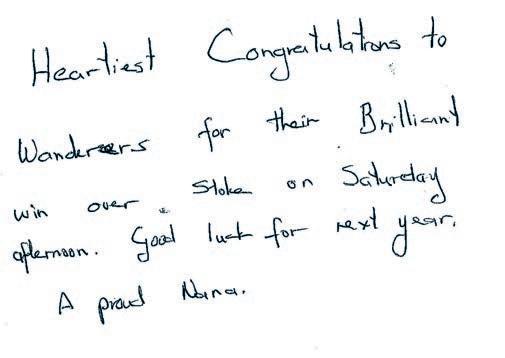 Heartiest Congratulations to
Wanderers for their Brilliant
win over Stoke on Saturday
afternoon. Good luck for next year.
A proud Nana.